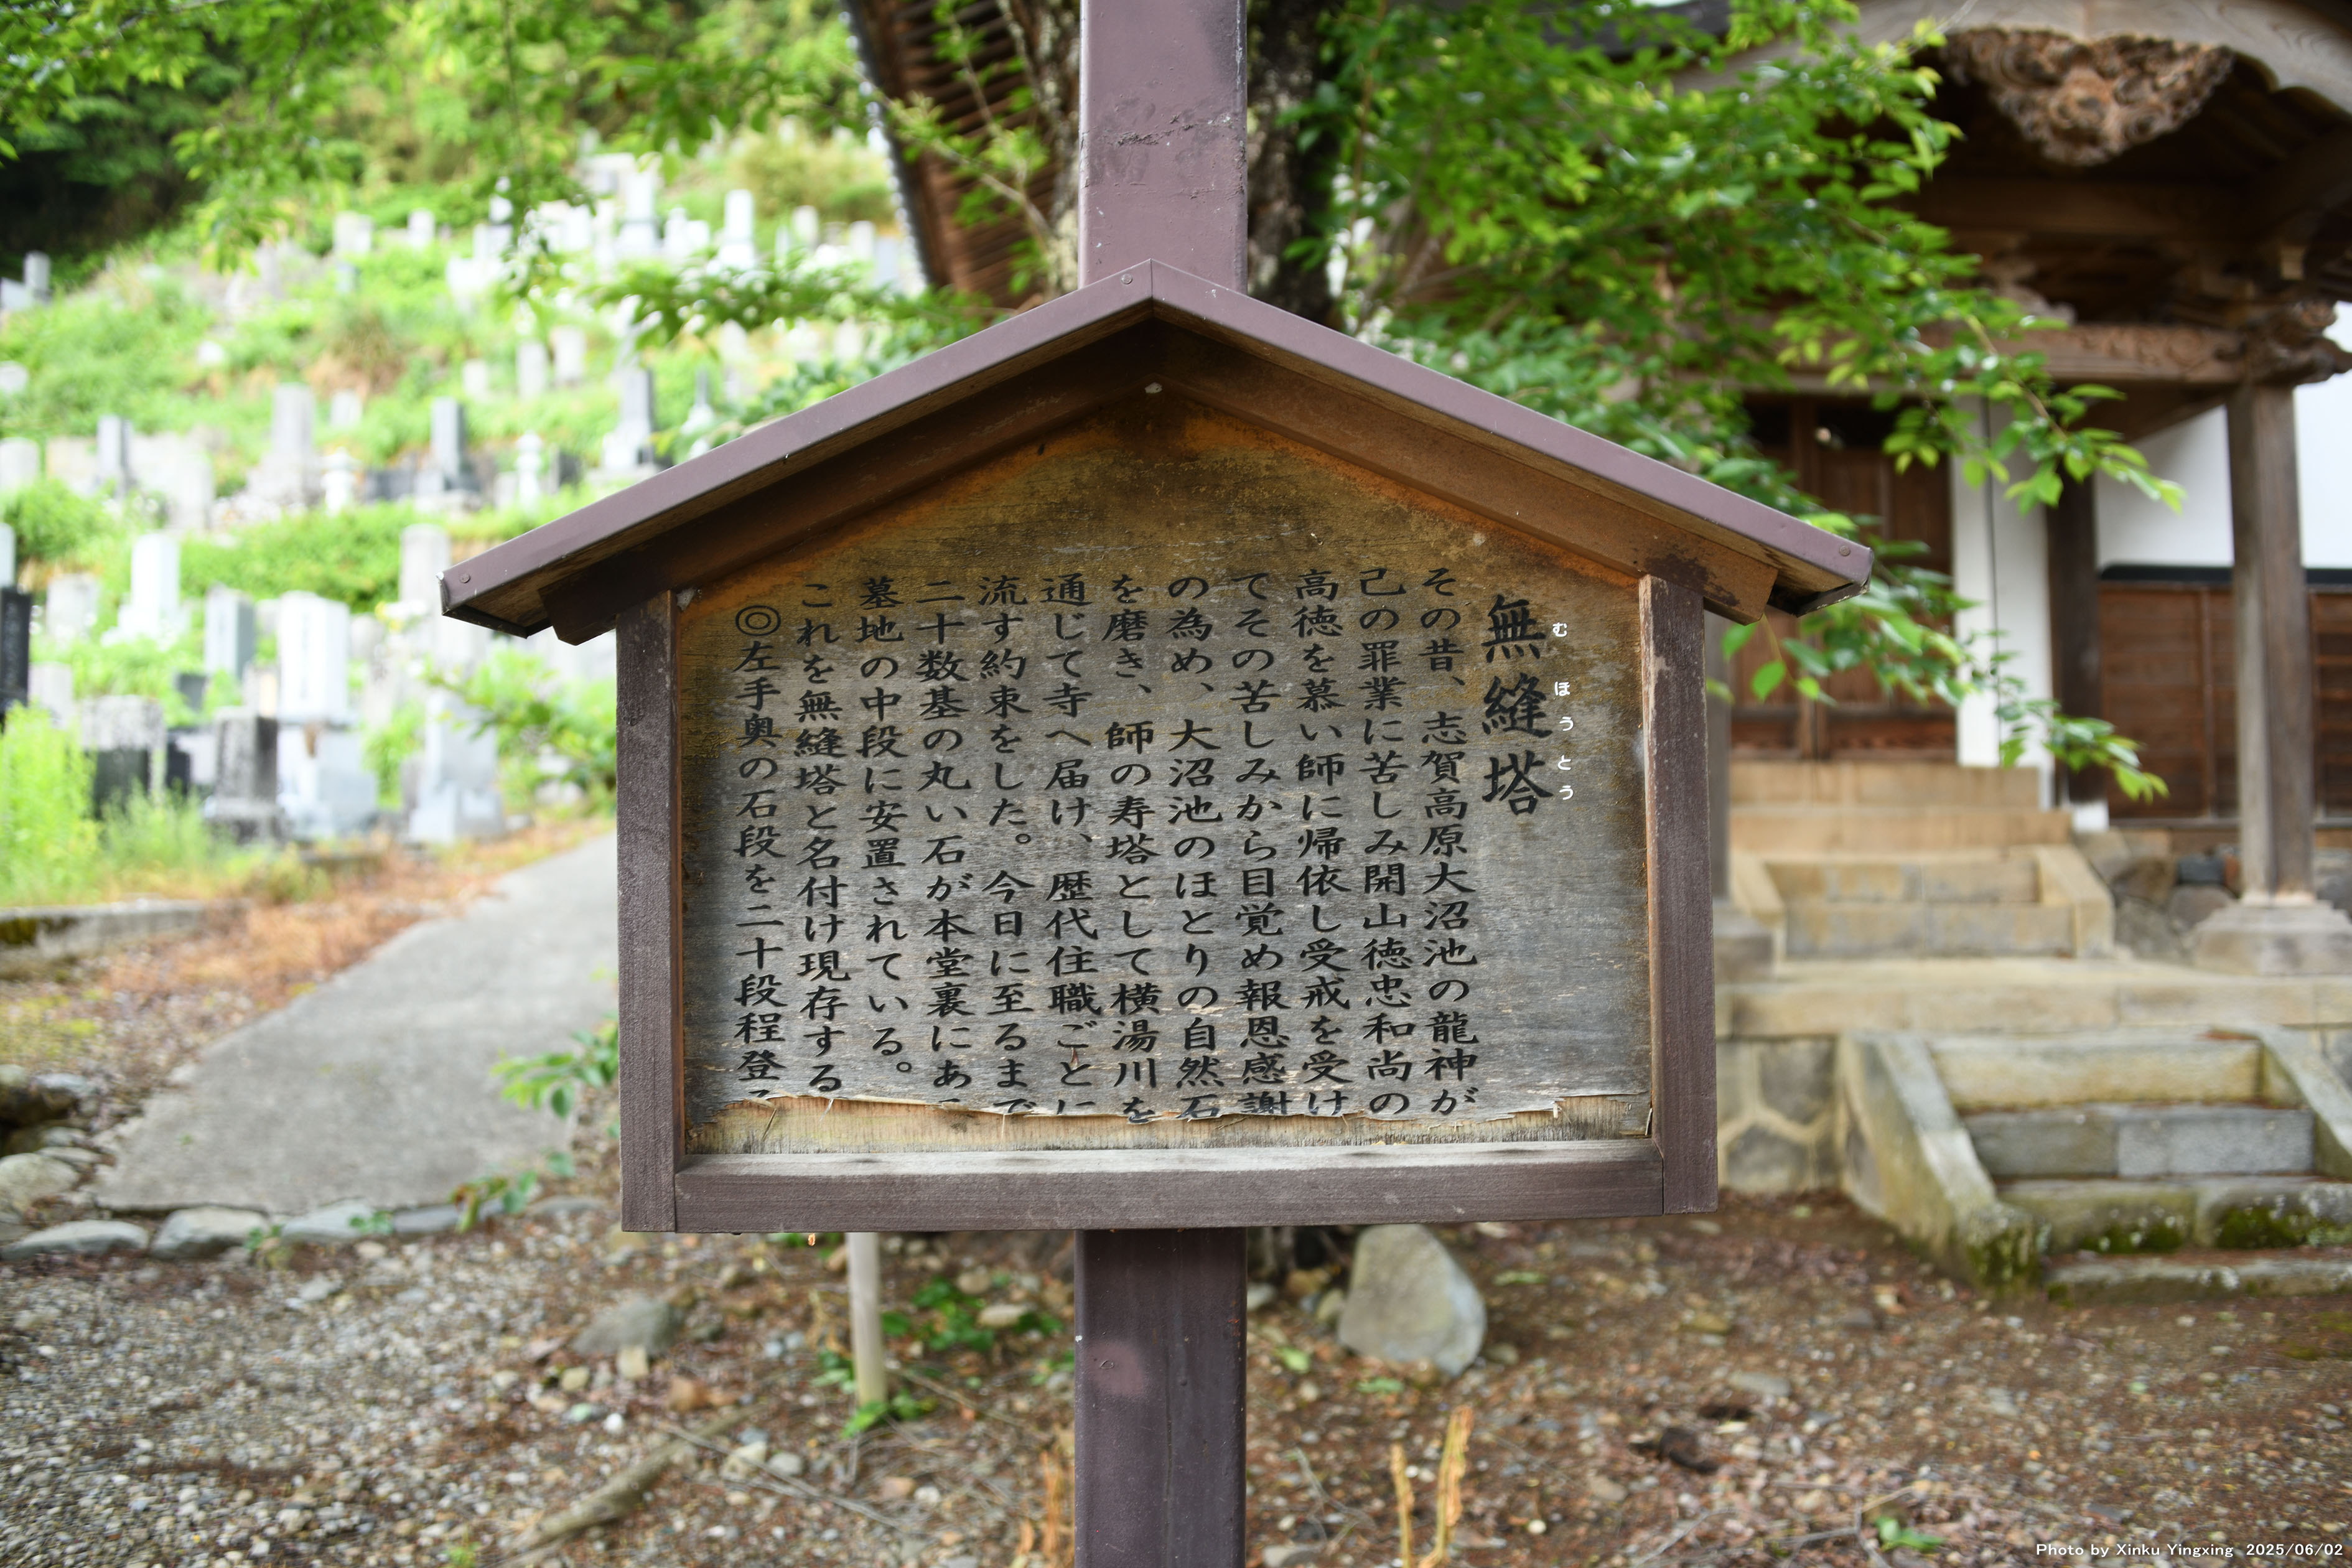 無縫塔
むほうとう
その昔、志賀高原大沼池の龍神が
己の罪業に苦しみ開山徳忠和尚の
高徳を慕い師に帰依し受戒を受け
てその苦しみから目覚め報恩感謝
の為め、大沼池のほとりの自然石
を磨き、師の寿塔として横湯川を
通じて寺へ届け、歴代住職ごとに
流す約束をした。今日に至るまで
二十数基の丸い石が本堂裏にあ
墓地の中段に安置されている。
これを無縫塔と名付け現存する
◎左手奥の石段を二十段程登
Photo by Xinku Yingxing 2025/06/02